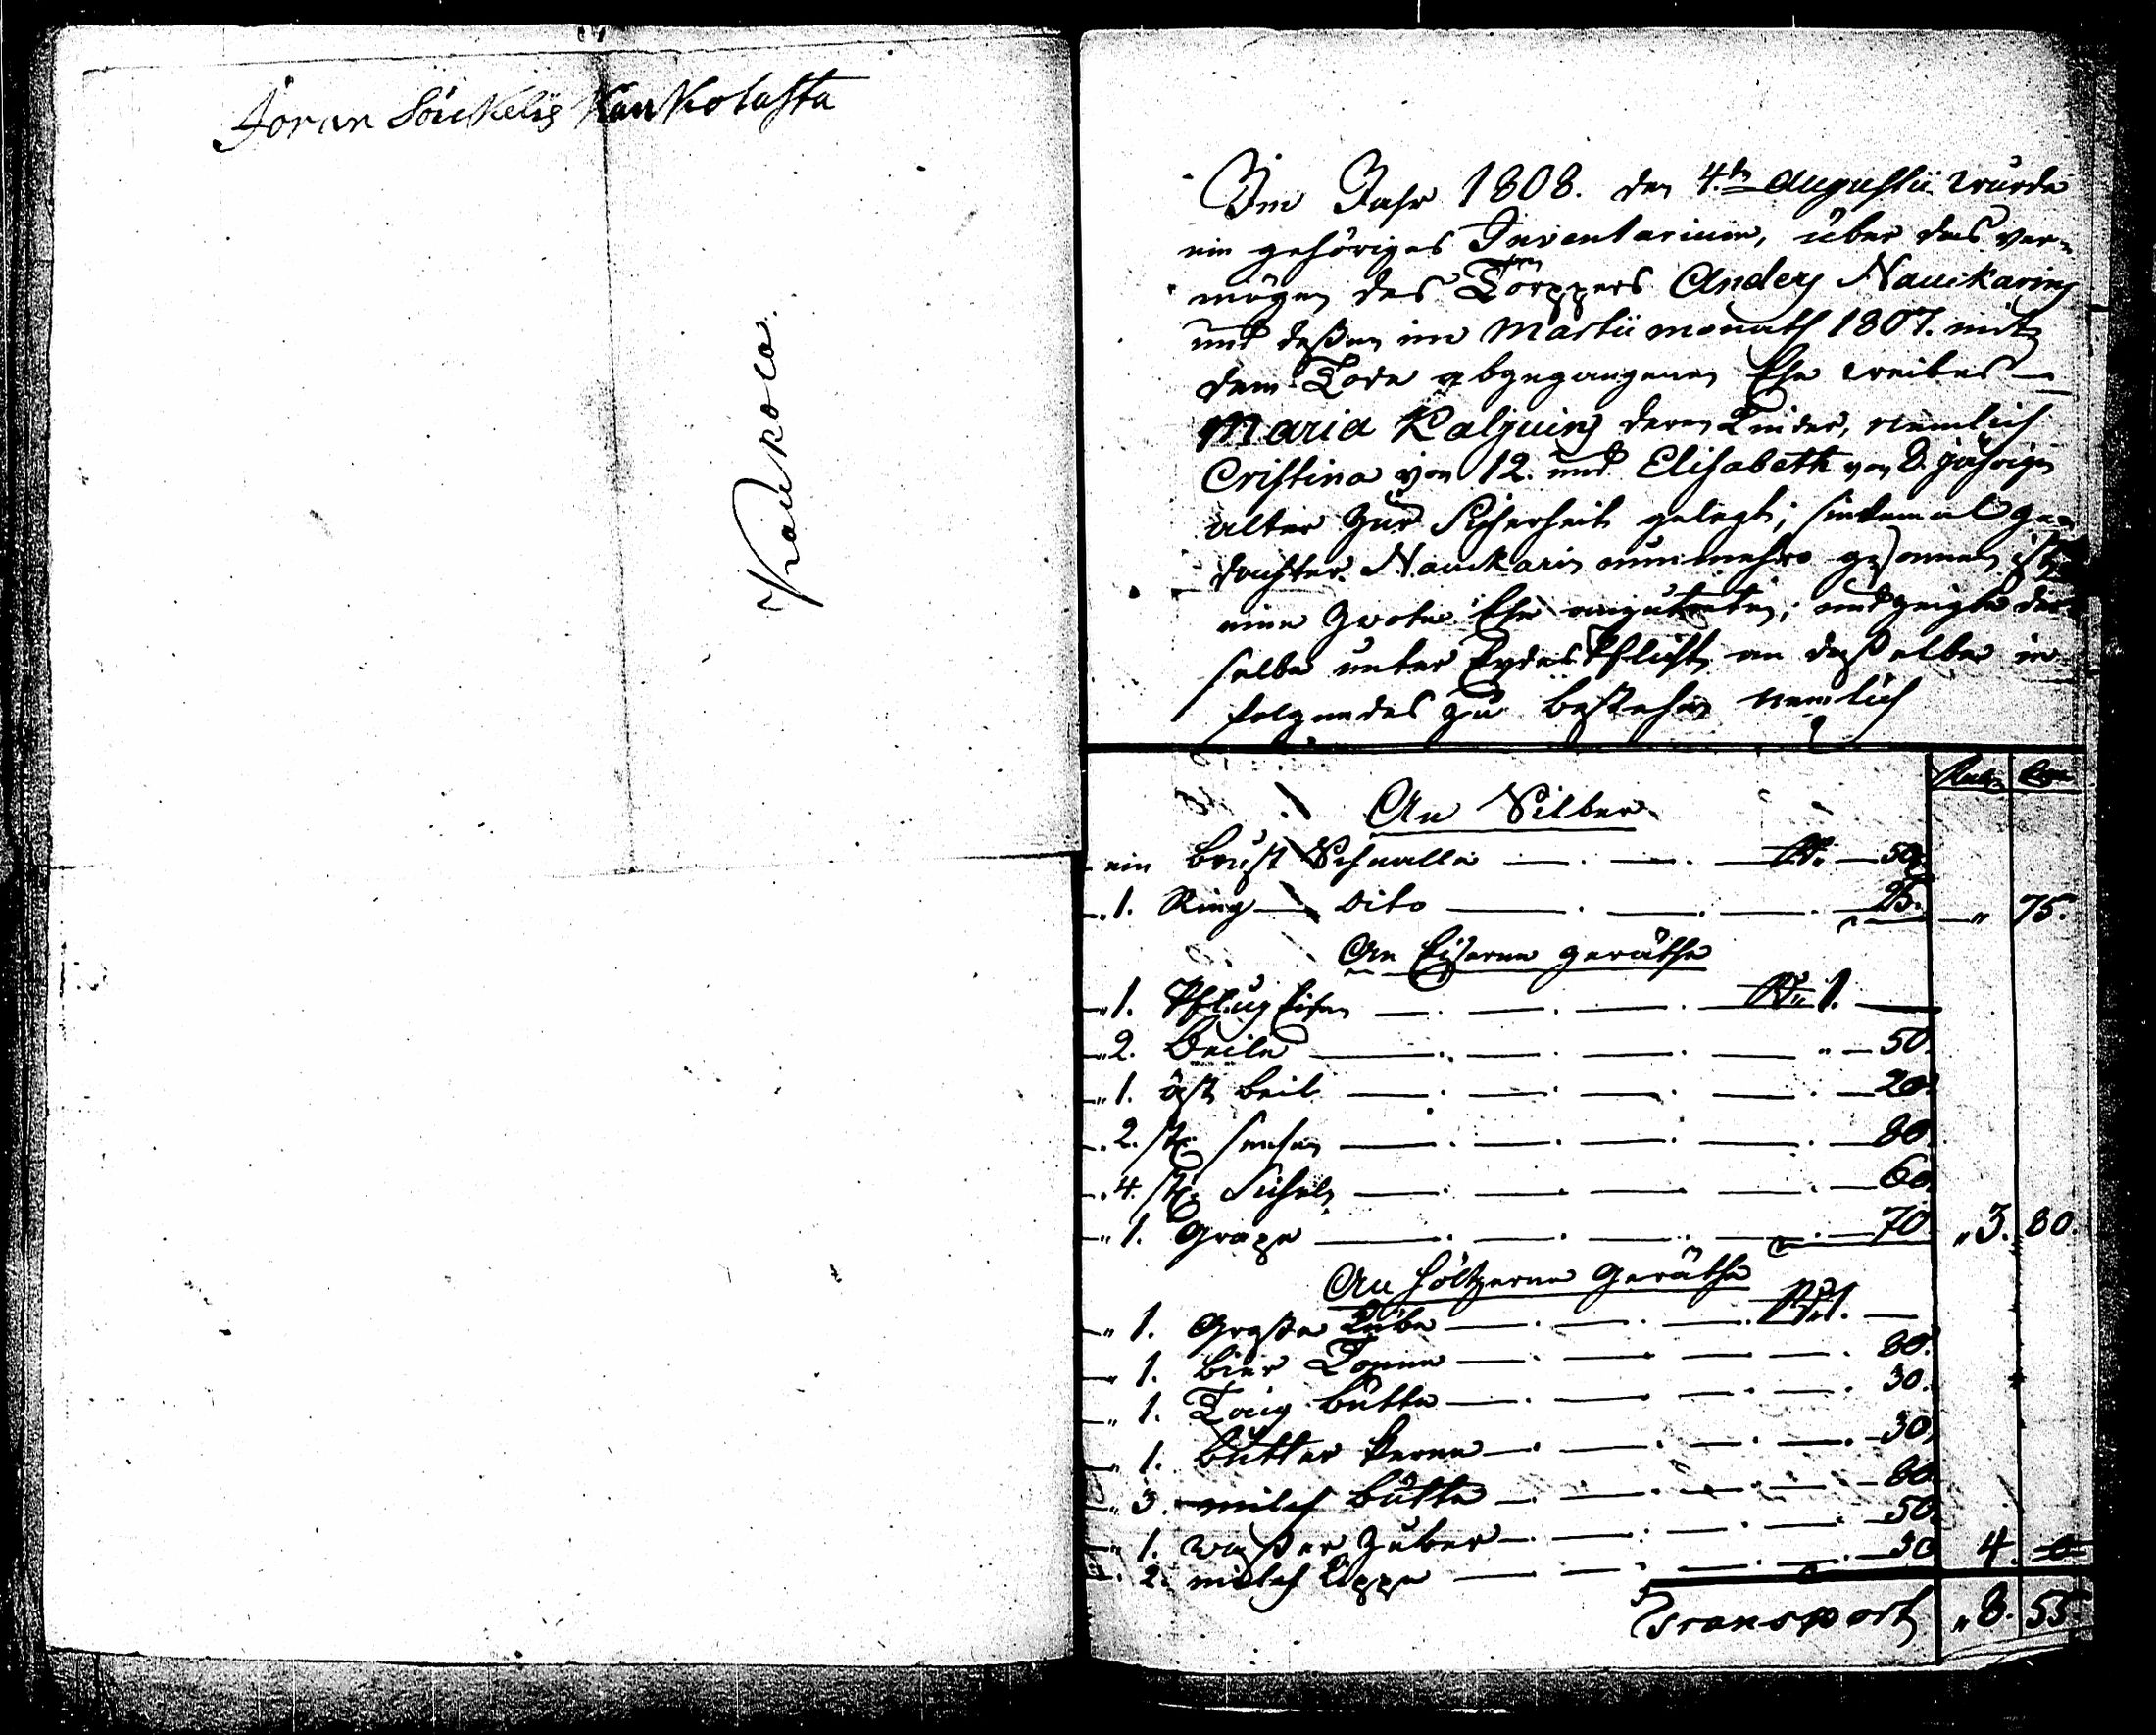 Joran Söickelis Kaukolasta
Kaukola.
Im Jahr 1808. den 4.tn Augustii wurde
ein gehöriges Inventarium, über das ver=
mögen des Torppers Anders Nauckarin
und deßen im Martii monath 1807. mit
dem Tode abgegangenen Ehe weibes
Maria Kaljuin deren Kinder, nemlich
Cristina von 12. und Elisabeth von 8. jährigen
alter zur Sicherheit gelegt; sintemal ge=
dachter Nauckarin nunmehro gesonnen ist
eine zwote Ehe anzutreten; und zeigte der=
selbe unter Eydes Pflicht an daßelbe in
folgendes zu bestehen nemlich
Rub. Kop.
An Silber
ein Brust Schnalle — . — . — Ru: — 50.
„ 1. Ring — Dito — . — . — . 25. — „ 75.
An Eiserne geräthe
„ 1. Pflug Eisen — . — . — . Ru: 1. —
„ 2. Beile — . — . — . — „ — 50.
„ 1. äst beil — . — . — . — 20.
„ 2. stk. sensen — . — . — . — 80.
„ 4. stk. Sicheln — . — . — . — 60.
„ 1. Grape — . — . — . — 70. „ 3. 80.
An höltzerne Geräthe
„ 1. Große Kübe — . — . — . Ru: 1. —
„ 1. bier Tonne — . — . — . 80.
„ 1. Taig bütte — . — . — . 30.
„ 1. butter kerne — . — . — . 30.
„ 3. milch bütte — . — . — . 80.
„ 1. waßer Zuber — . — . — . 50.
„ 2. milch — . — . — . 30 4. —
Transport „ 8. 55.